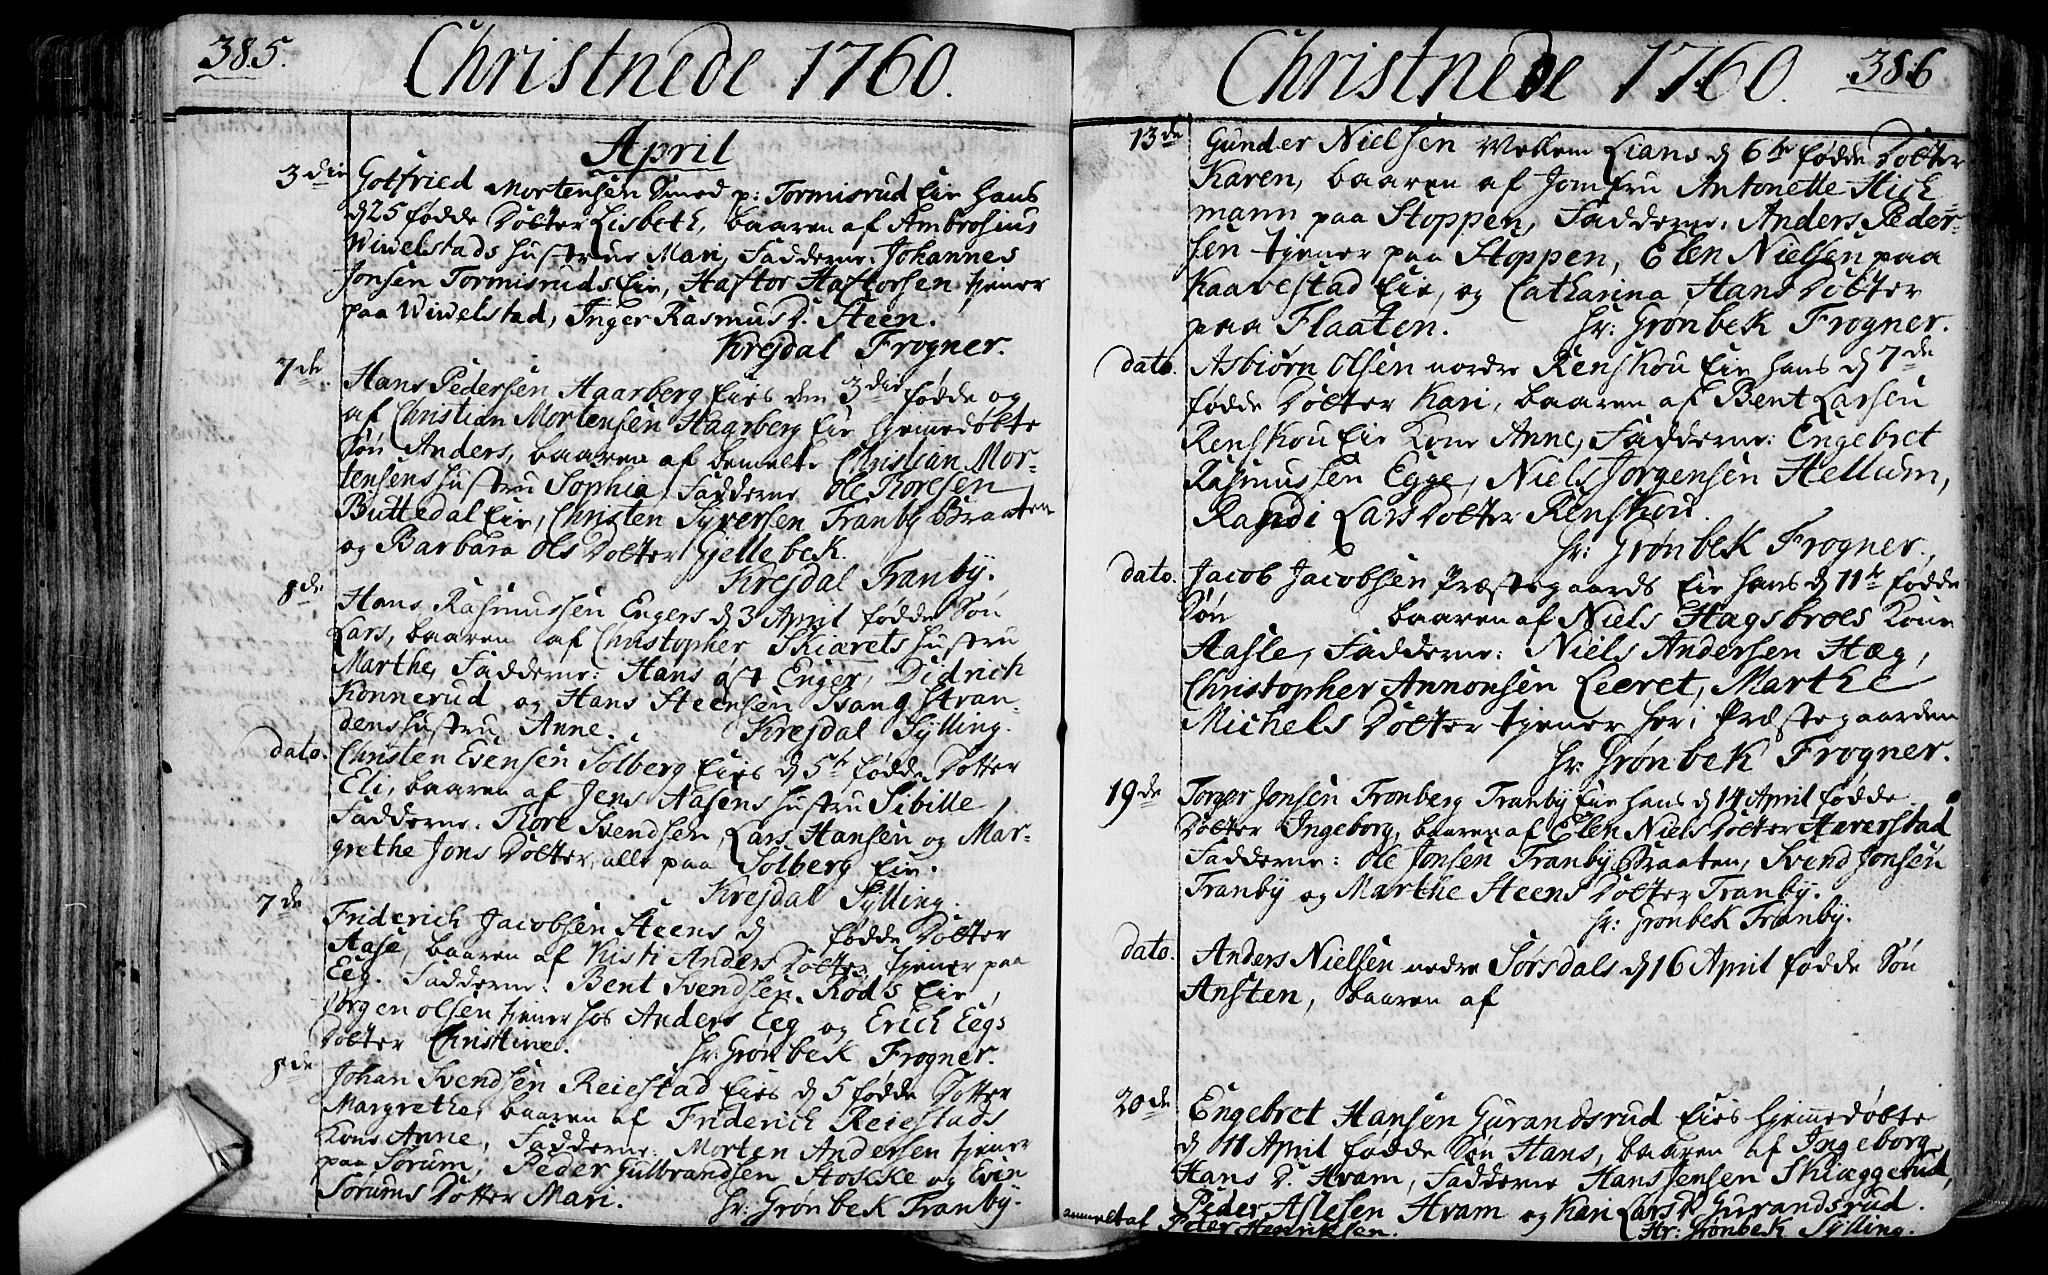 385.
Christnede 1760.
April
3die Gotfried Mortensen Smed p: Tormisrud Eie hans
d 25 fødde Dotter Lisbeth, baaren af Ambrosius
Wiwelstads hustrue Mari, Fadderne: Johannes
Jonsen Tormisruds Eie, Haftor Haftorsen tjener
paa Wiwelstad, Inger Rasmus D. Steen.
Krejdal Frogner.
7de. Hans Pedersen Haarberg Eies den 3die fødde og
af Christian Mortensen Haarberg Eie hjemedøbte
Søn Anders, baaren af bemelte Christian Mor-
tensens hustru Sophia, Fadderne Ole Toresen
Buttedal Eie, Christen Syversen Tranby Braaten
og Barbara Ols Dotter Gjellebek.
Krejdal Tranby.
8de Hans Rasmussen Engers d 3 April fødde Søn
Lars, baaren af Christopher Skiærets hustru
Marthe, Fadderne: Hans øst Enger, Didrich
Konnerud og Hans Steensen Svangstran-
dens hustru Anne. Krejdal Sylling.
dato. Christen Evensen Solberg Eies d 5te fødde Dotter
Eli, baaren af Jens Aasens hustru Sibille,
Fadderne: Tore Svendsen, Lars Hansen og Mar-
grethe Jons Dotter, alle paa Solberg Eie.
Krejdal Sylling.
7de Friderich Jacobsen Steens d fødde Dotter
Aase, baaren af Kisti Anders Dotter tjener paa
Eeg. Fadderne: Bent Svendsen Røds Eie,
Jørgen Olsen tjener hos Anders Eeg og Erich Eegs
Dotter Christine. Hr: Grønbek Frogner.
8de Johan Svendsen Reiestad Eies d 5 fødde Dotter
Margrethe, baaren af Friderich Reiestads
Kone Anne, Fadderne: Morten Andersen tjener
paa Sørum, Peder Gulbrandsen Stokke og Even
Sørums Dotter Mari. Hr: Grønbek Tranby.
Christnede 1760. 386
13de Gunder Nielsen Mellem Lians d 6te fødde Dotter
Karen, baaren af Jomfru Antonette Hich
mann paa Stoppen, Fadderne: Anders Peder-
sen tjener paa Stoppen, Elen Nielsen paa
Kaavestad Eie, og Catharina Hans Dotter
paa Flaaten. Hr: Grønbek Frogner.
dato. Asbiørn Olsen nordre Renskou Eie hans d 7de
fødde Dotter Kari, baaren af Bent Larsen
Renskou Eie Kone Anne, Fadderne: Engebret
Rasmussen Egge, Niels Jørgensen Hellum,
Randi Lars Dotter Renskou.
Hr: Grønbek Frogner.
dato. Jacob Jacobsen Præstegaards Eie hans d 11te fødde
Søn baaren af Niels Hagsbroes Kone
Aasle, Fadderne: Niels Andersen Hæg,
Christopher Annonsen Leeret, Marthe
Michels Dotter tjener her i Præstegaarden
Hr: Grønbek Frogner.
19de Torger Jonsen Fronberg Tranby Eie hans d 14 April fødde
Dotter Ingeborg, baaren af Elen Niels Dotter Haverstad
Fadderne: Ole Jonsen Tranby Braaten, Svend Jonsen
Tranby og Marthe Steens Dotter Tranby.
Hr: Grønbek Tranby.
dato. Anders Nielsen nedre Sørsdals d 16 April fødde Søn
Ansten, baaren af
20de Engebret Hansen Gurandsrud Eies hjemmedøbte
d 11 April fødde Søn Hans, baaren af Ingeborg
Hans D. Hvam, Fadderne Hans Jensen Skiæggerud,
Peder Aslesen Hvam og Kari Lars D. Gurandsrud.
anmelt af Peter Henriksen. Hr: Grønbek Sylling.